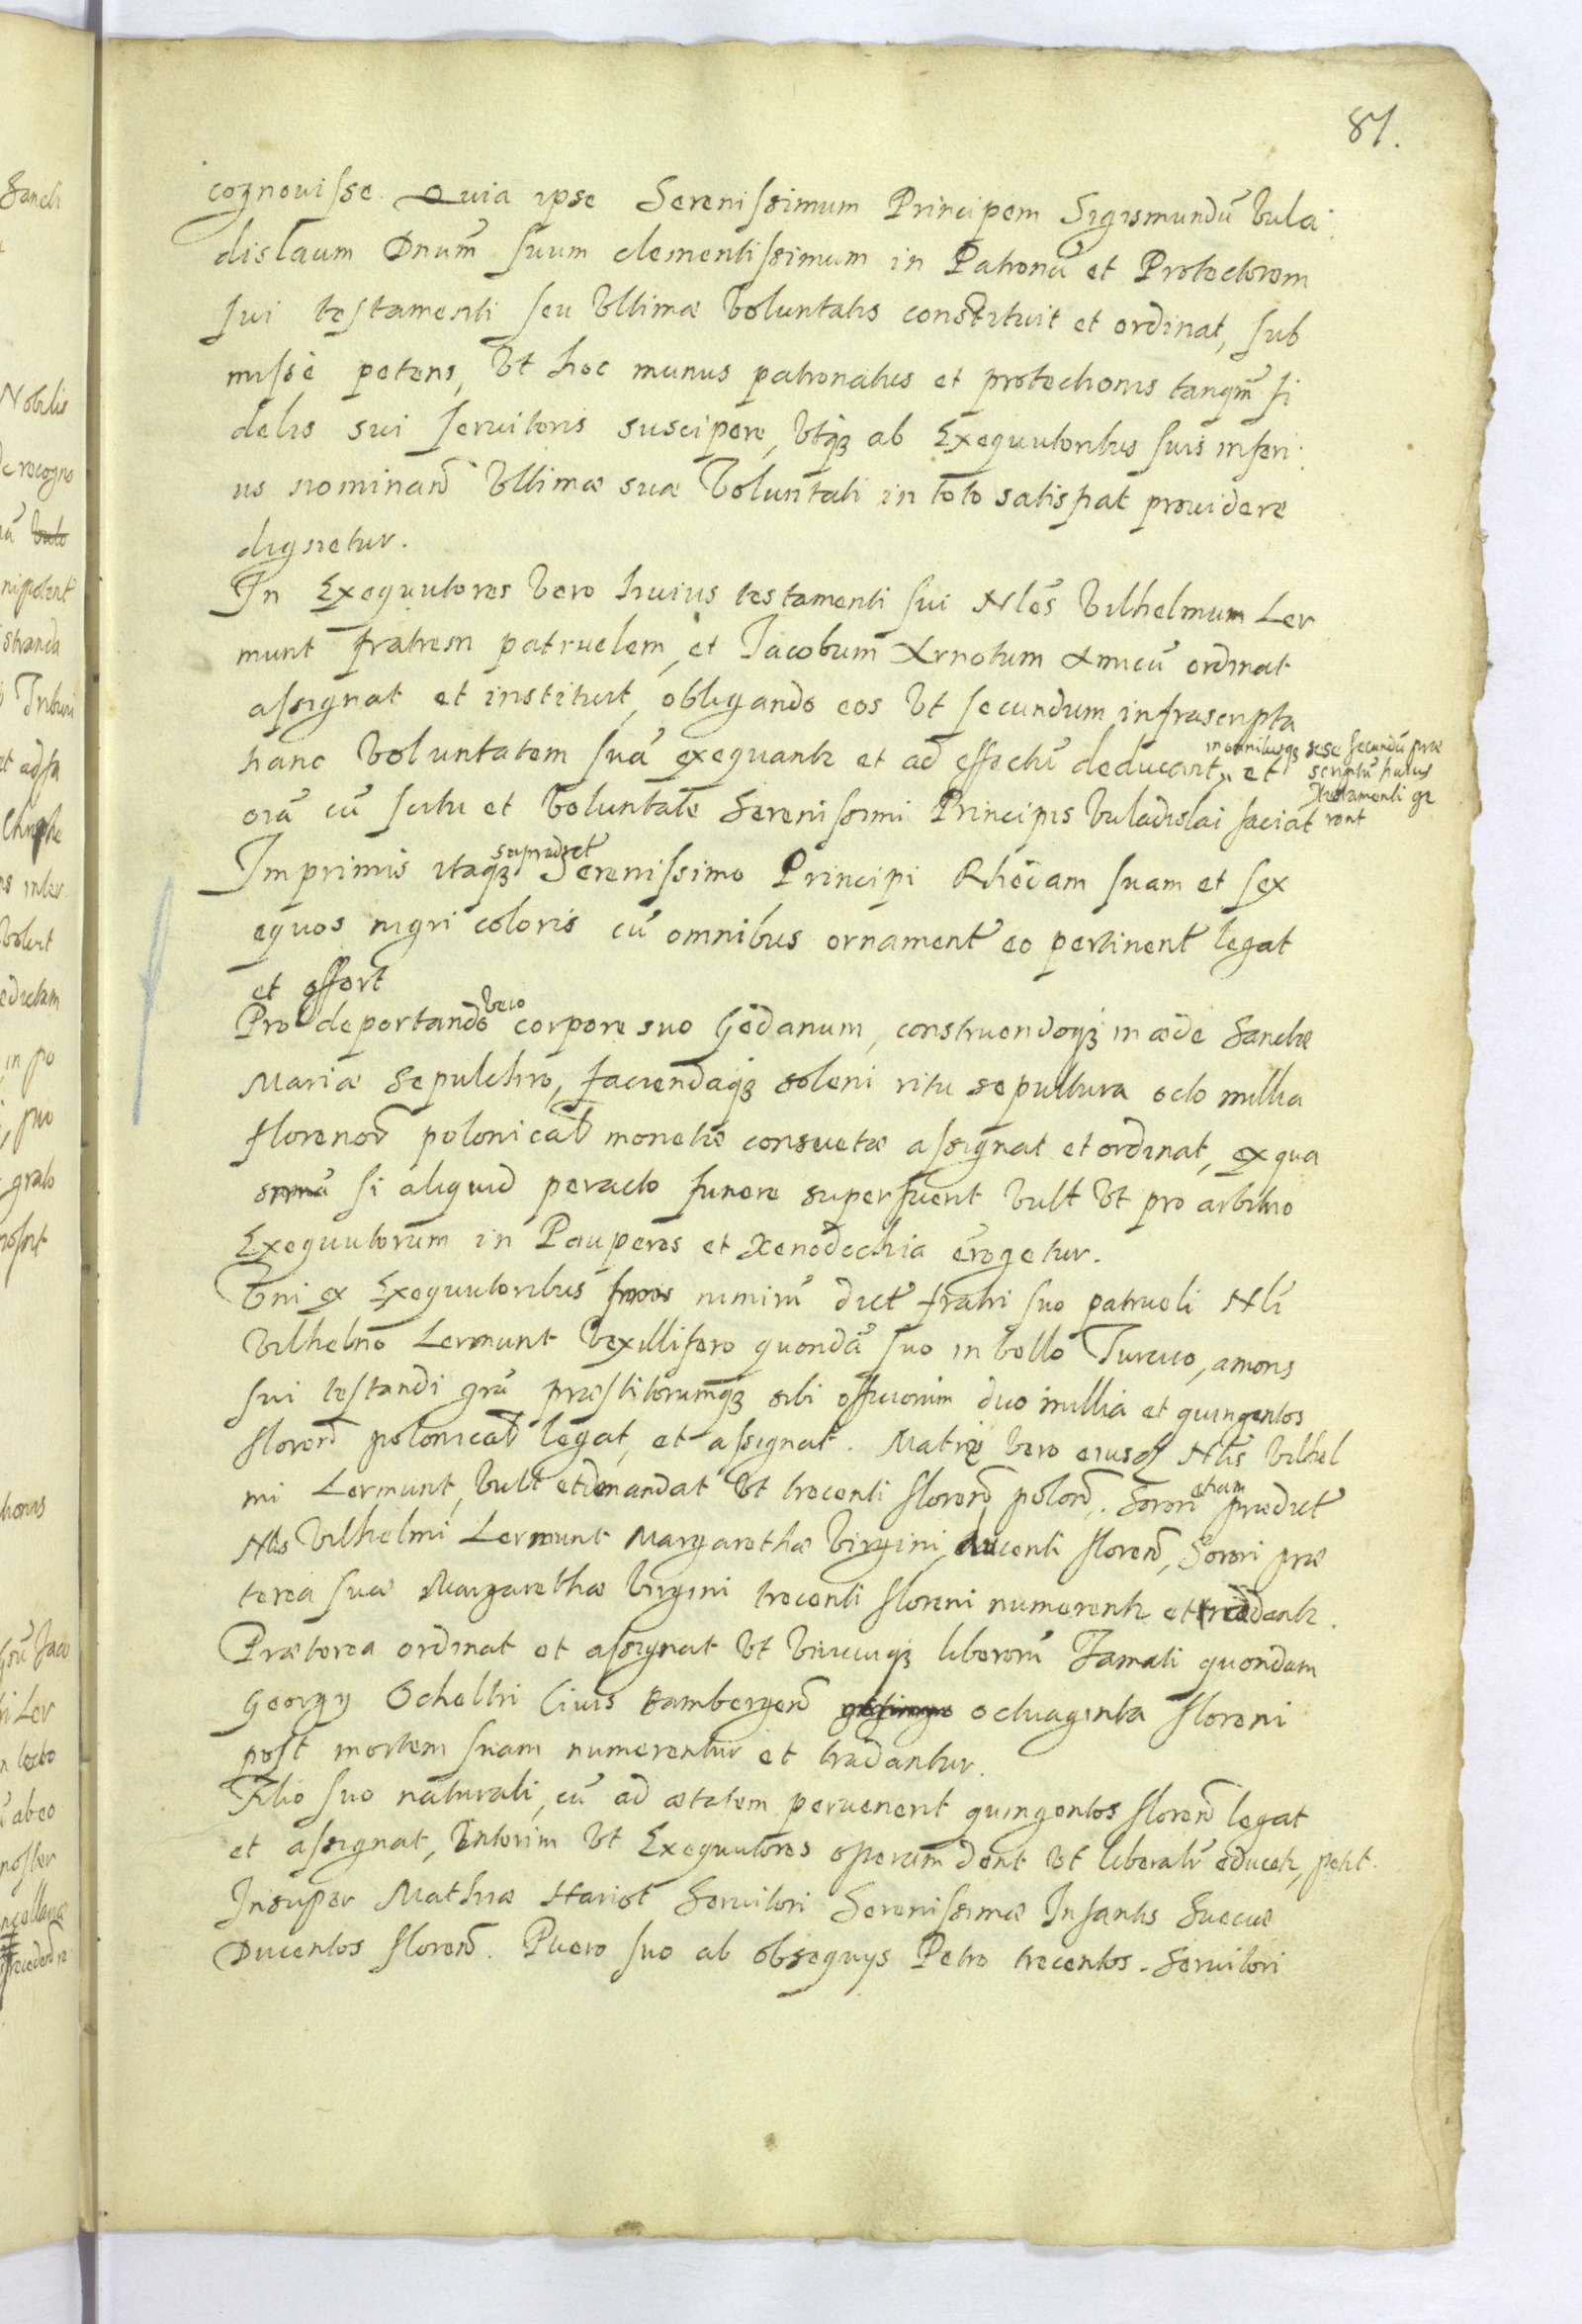 87.
cognouisse. Quia ipse Serenissimum Principem Sigismundũ Vula
dislaum Dnum̃ suum clementissimum in Patronũ et Protectorem
sui testamenti seu Vltimæ Voluntatis constituit et ordinat, sub
missè petens, Vt hoc munus patronatus et protectionis tanqm̃ fi
delis sui seruitoris suscipere, Vtq₃ ab Exequutoribus suis inferi
us nominand Vltimæ suæ Voluntati in toto satisfiat prouidere
dignetur.
In Exequutores Vero huius testamenti sui Nles Vilhelmum Ler
munt fratrem patruelem, et Jacobum Arnotum Amicũ ordinat
assignat et instituit, obligando eos Vt secundum infrascripta
hanc Voluntatem suã exequantr et ad effectũ deducant, et
in omnibusq₃ sese secundũ præ
scriptũ huius
Testamenti ge
rant
oĩa cũ scitu et Voluntate Serenissimi Principis Vuladislai faciãt
Imprimis itaq₃ supradict Serenissimo Principi Rhedam suam et sex
equos nigri coloris cũ omnibus ornament eo pertinent legat
et offert
Pro deportando vero corpore suo Gedanum, construendoq₃ in æde Sanctæ
Mariæ Sepulchro, faciendaq₃ soleni ritu sepultura octo millia
florenor polonical monetæ consuetæ assignat et ordinat, ex qua
sũmã si aliquid peracto funere superfuerit vult Vt pro arbitrio
Exequutorum in Pauperes et Xenodochia erogetur.
Vni ex Exequutoribus suis nimirũ dict fratri suo patrueli Nli
Vilhelmo Lermunt Vexillifero quondã suo in bello Turcico, amoris
sui testandi grã præstitorumq₃ sibi officiorum duo millia et quingentos
floren polonical legat, et assignat. Matri vero eiusd Nlis Vilhel
mi Lermunt, Vult et mandat Vt trecenti floren polon. Sorori etiam prædict
Nlis Vilhelmi Lermunt Margarethæ Virgini, ducenti floren, Sorori præ
terea suæ Margarethæ Virgini trecenti floreni numerentr et tradantr.
Præterea ordinat et assignat Vt Vnicuiq₃ liberorũ Famati quondam
Georgy Ocheltri Ciuis Bambergen octuaginta floreni
post mortem suam numerentur et tradantur.
Filio suo naturali, cũ ad ætatem peruenerit quingentos floren legat
et assignat, Interim Vt Exequutores operam dent Vt liberalr educetr, petit.
Insuper Mathiæ Hariot Seruitori Serenissimæ Infantis Sueciæ
Ducentos floren. Puero suo ab obsequys Petro trecentos. Seruitori